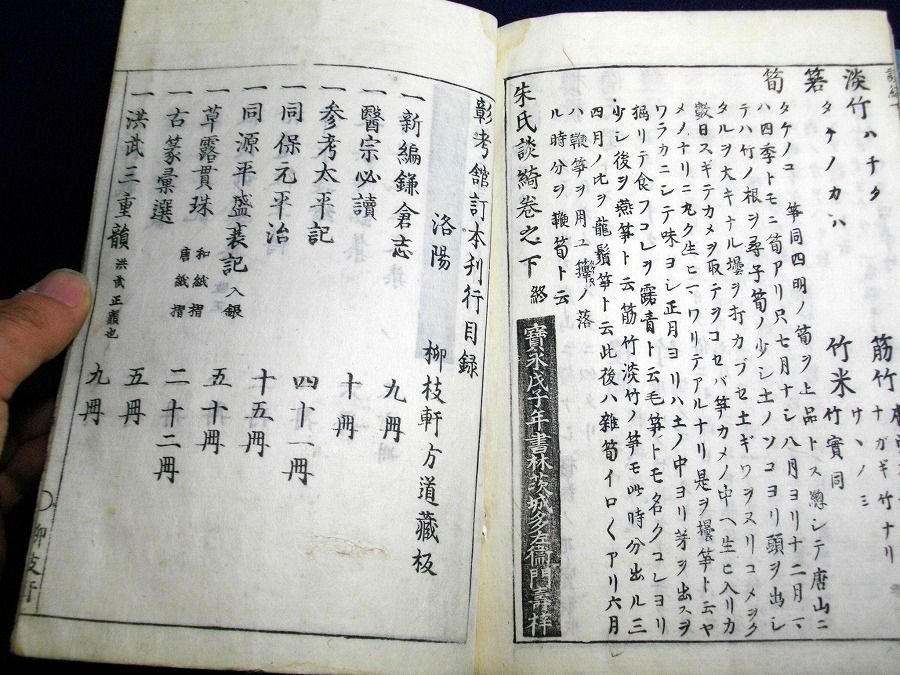 淡竹 ハチク
筋竹
ナガキ竹ナリ
箬 タケノカハ
竹米 竹實同
サヽノミ
筍 タケノコ 筝同四明ノ筍ヲ上品トス惣シテ唐山ニ
ハ四季トモニ筍アリ只七月ナシ八月ヨリ十二月マ
テハ竹ノ根ヲ尋子筍ノ少シ土ノソコヨリ頭ヲ出シ
タルヲ大キナル壜ヲ打カブセ土ギワヲスリコメヲク
數日スギテカメヲ取テヲコセバ筝カメノ中ヘ生ヒ入リカ
メノナリニ丸ク生ヒマワリテアルナリ是ヲ壜筝ト云ヤ
ワラカニシテ味ヨシ正月ヨリハ土ノ中ヨリ芽ヲ出スヲ
掘リテ食フコレヲ雷青ト云毛筝トモ名ククコレヨリ
少シ後ヲ燕筝ト云筋竹淡竹ノ筝モ此時分出ル三
四月ノ比ヲ龍鬚筝ト云此後ハ雜筍イロ〱アリ六月
ハ鞭筝ヲ月ユ ノ落
ル時分ヲ鞭筍ト云
朱氏談綺卷之下 終
寶永戊子年書林茨城多左衞門壽梓
彰考舘訂本刊行目録
洛陽 柳枝軒方道藏板
一 新編鎌倉志 九冊
一 醫宗必讀 十冊
一 参考太平記 四十一冊
一 同保元平治 十五冊
一 同源平盛衰記 入銀 五十冊
一 草露貫珠 和紙摺 唐紙摺 二十二冊
一 古篆彙選 五冊
一 洪武三重韻 洪武正義也 九冊
柳枝軒